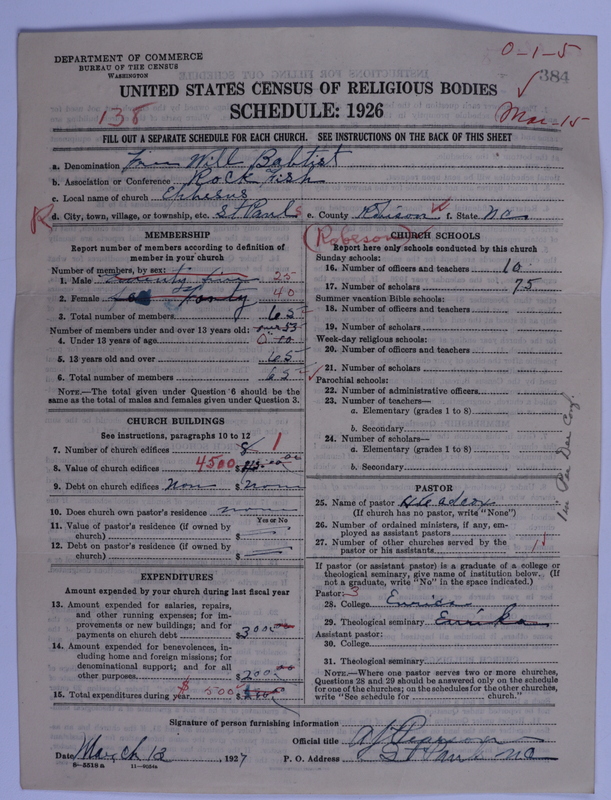 DEPARTMENT OF COMMERCE
BUREAU OF THE CENSUS
WASHINGTON
0-1-5
384
UNITED STATES CENSUS OF RELIGIOUS BODIES
138
SCHEDULE: 1926
Mar-15
FILL OUT A SEPARATE SCHEDULE FOR EACH CHURCH. SEE INSTRUCTIONS ON THE BACK OF THIS SHEET
a. Denomination Free Will Babtist
b. Association or Conference Rock Fish
c. Local name of church Ephesus
R d. City, town, village, or township, etc. St Pauls e. County f. State NC
(Robeson)
MEMBERSHIP
Report number of members according to definition of
member in your church
Number of members, by sex:
1. Male 25
2. Female Fourty 40
3. Total number of members 65
Number of members under and over 13 years old:
4. Under 13 years of age 0
5. 13 years old and over 65
6. Total number of members 65
NOTE.—The total given under Question 6 should be
same as the total of males and females given under Question 3.
CHURCH BUILDINGS
See instructions, paragraphs 10 to 12
7. Number of church edifices 1
8. Value of church edifices 4500 $
9. Debt on church edifices Non $ Non
10. Does church own pastor's residence
Yes or No
11. Value of pastor's residence (if owned by
church) $
12. Debt on pastor's residence (if owned by
church) $
EXPENDITURES
Amount expended by your church during last fiscal year
13. Amount expended for salaries, repairs,
and other running expenses; for im-
provements or new buildings; and for
payments on church debt $300 00
14. Amount expended for benevolences, in-
cluding home and foreign missions; for
denominational support; and for all
other purposes $200 00
15. Total expenditures during year $ 500
CHURCH SCHOOLS
Report here only schools conducted by this church
Sunday schools:
16. Number of officers and teachers 10
17. Number of scholars 75
Summer vacation Bible schools:
18. Number of officers and teachers
19. Number of scholars
Week-day religious schools:
20. Number of officers and teachers
21. Number of scholars
Parochial schools:
22. Number of administrative officers
23. Number of teachers—
a. Elementary (grades 1 to 8)
b. Secondary
24. Number of scholars—
a. Elementary (grades 1 to 8)
b. Secondary
PASTOR
25. Name of pastor
(If church has no pastor, write "None")
26. Number of ordained ministers, if any, em-
ployed as assistant pastors
27. Number of other churches served by the
pastor or his assistants
If pastor (or assistant pastor) is a graduate of a college or
theological seminary, give name of institution below. (If
not a graduate, write "No" in the space indicated.)
Pastor: 3
28. College
29. Theological seminary Eurika
Assistant pastor:
30. College
31. Theological seminary
NOTE.—Where one pastor serves two or more churches,
Questions 28 and 29 should be answered only on the schedule
for one of the churches; on the schedules for the other churches,
write "See schedule for church."
Signature of person furnishing information
Official title
Date March 12, 1927 P. O. Address St Pauls NC